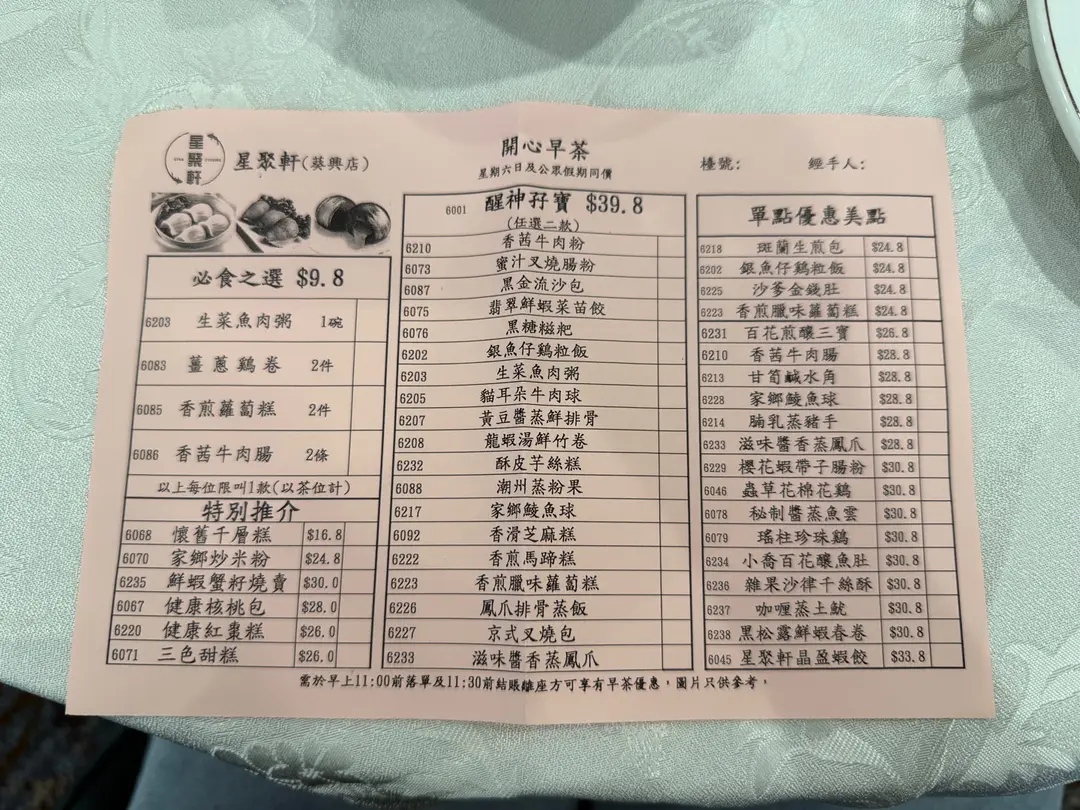 星聚軒
星聚軒(葵興店)
開心早茶
星期六日及公眾假期同價
檯號:
經手人:
必食之選 $9.8
6203 生菜魚肉粥 1碗
6083 薑蔥鷄卷 2件
6085 香煎蘿蔔糕 2件
6086 香茜牛肉腸 2條
以上每位限叫1款(以茶位計)
特別推介
6068 懷舊千層糕 $16.8
6070 家鄉炒米粉 $24.8
6235 鮮蝦蟹籽燒賣 $30.0
6067 健康核桃包 $28.0
6220 健康紅棗糕 $26.0
6071 三色甜糕 $26.0
6001 醒神孖寶 $39.8
(任選二款)
6210 香茜牛肉粉
6073 蜜汁叉燒腸粉
6087 黑金流沙包
6075 翡翠鮮蝦菜苗餃
6076 黑糖糍粑
6202 銀魚仔鷄粒飯
6203 生菜魚肉粥
6205 貓耳朵牛肉球
6207 黃豆醬蒸鮮排骨
6208 龍蝦湯鮮竹卷
6232 酥皮芋絲糕
6088 潮州蒸粉果
6217 家鄉鯪魚球
6092 香滑芝麻糕
6222 香煎馬蹄糕
6223 香煎臘味蘿蔔糕
6226 鳳爪排骨蒸飯
6227 京式叉燒包
6233 滋味醬香蒸鳳爪
單點優惠美點
6218 斑蘭生煎包 $24.8
6202 銀魚仔鷄粒飯 $24.8
6225 沙爹金錢肚 $24.8
6223 香煎臘味蘿蔔糕 $24.8
6231 百花煎釀三寶 $26.8
6210 香茜牛肉腸 $28.8
6213 甘筍鹹水角 $28.8
6228 家鄉鯪魚球 $28.8
6214 腩乳蒸豬手 $28.8
6233 滋味醬香蒸鳳爪 $28.8
6229 櫻花蝦帶子腸粉 $30.8
6046 蟲草花棉花鷄 $30.8
6078 秘制醬蒸魚雲 $30.8
6079 瑤柱珍珠鷄 $30.8
6234 小喬百花釀魚肚 $30.8
6236 雜果沙律千絲酥 $30.8
6237 咖喱蒸土魷 $30.8
6238 黑松露鮮蝦春卷 $30.8
6045 星聚軒晶盈蝦餃 $33.8
需於早上11:00前落單及11:30前結賬離座方可享有早茶優惠,圖片只供參考,